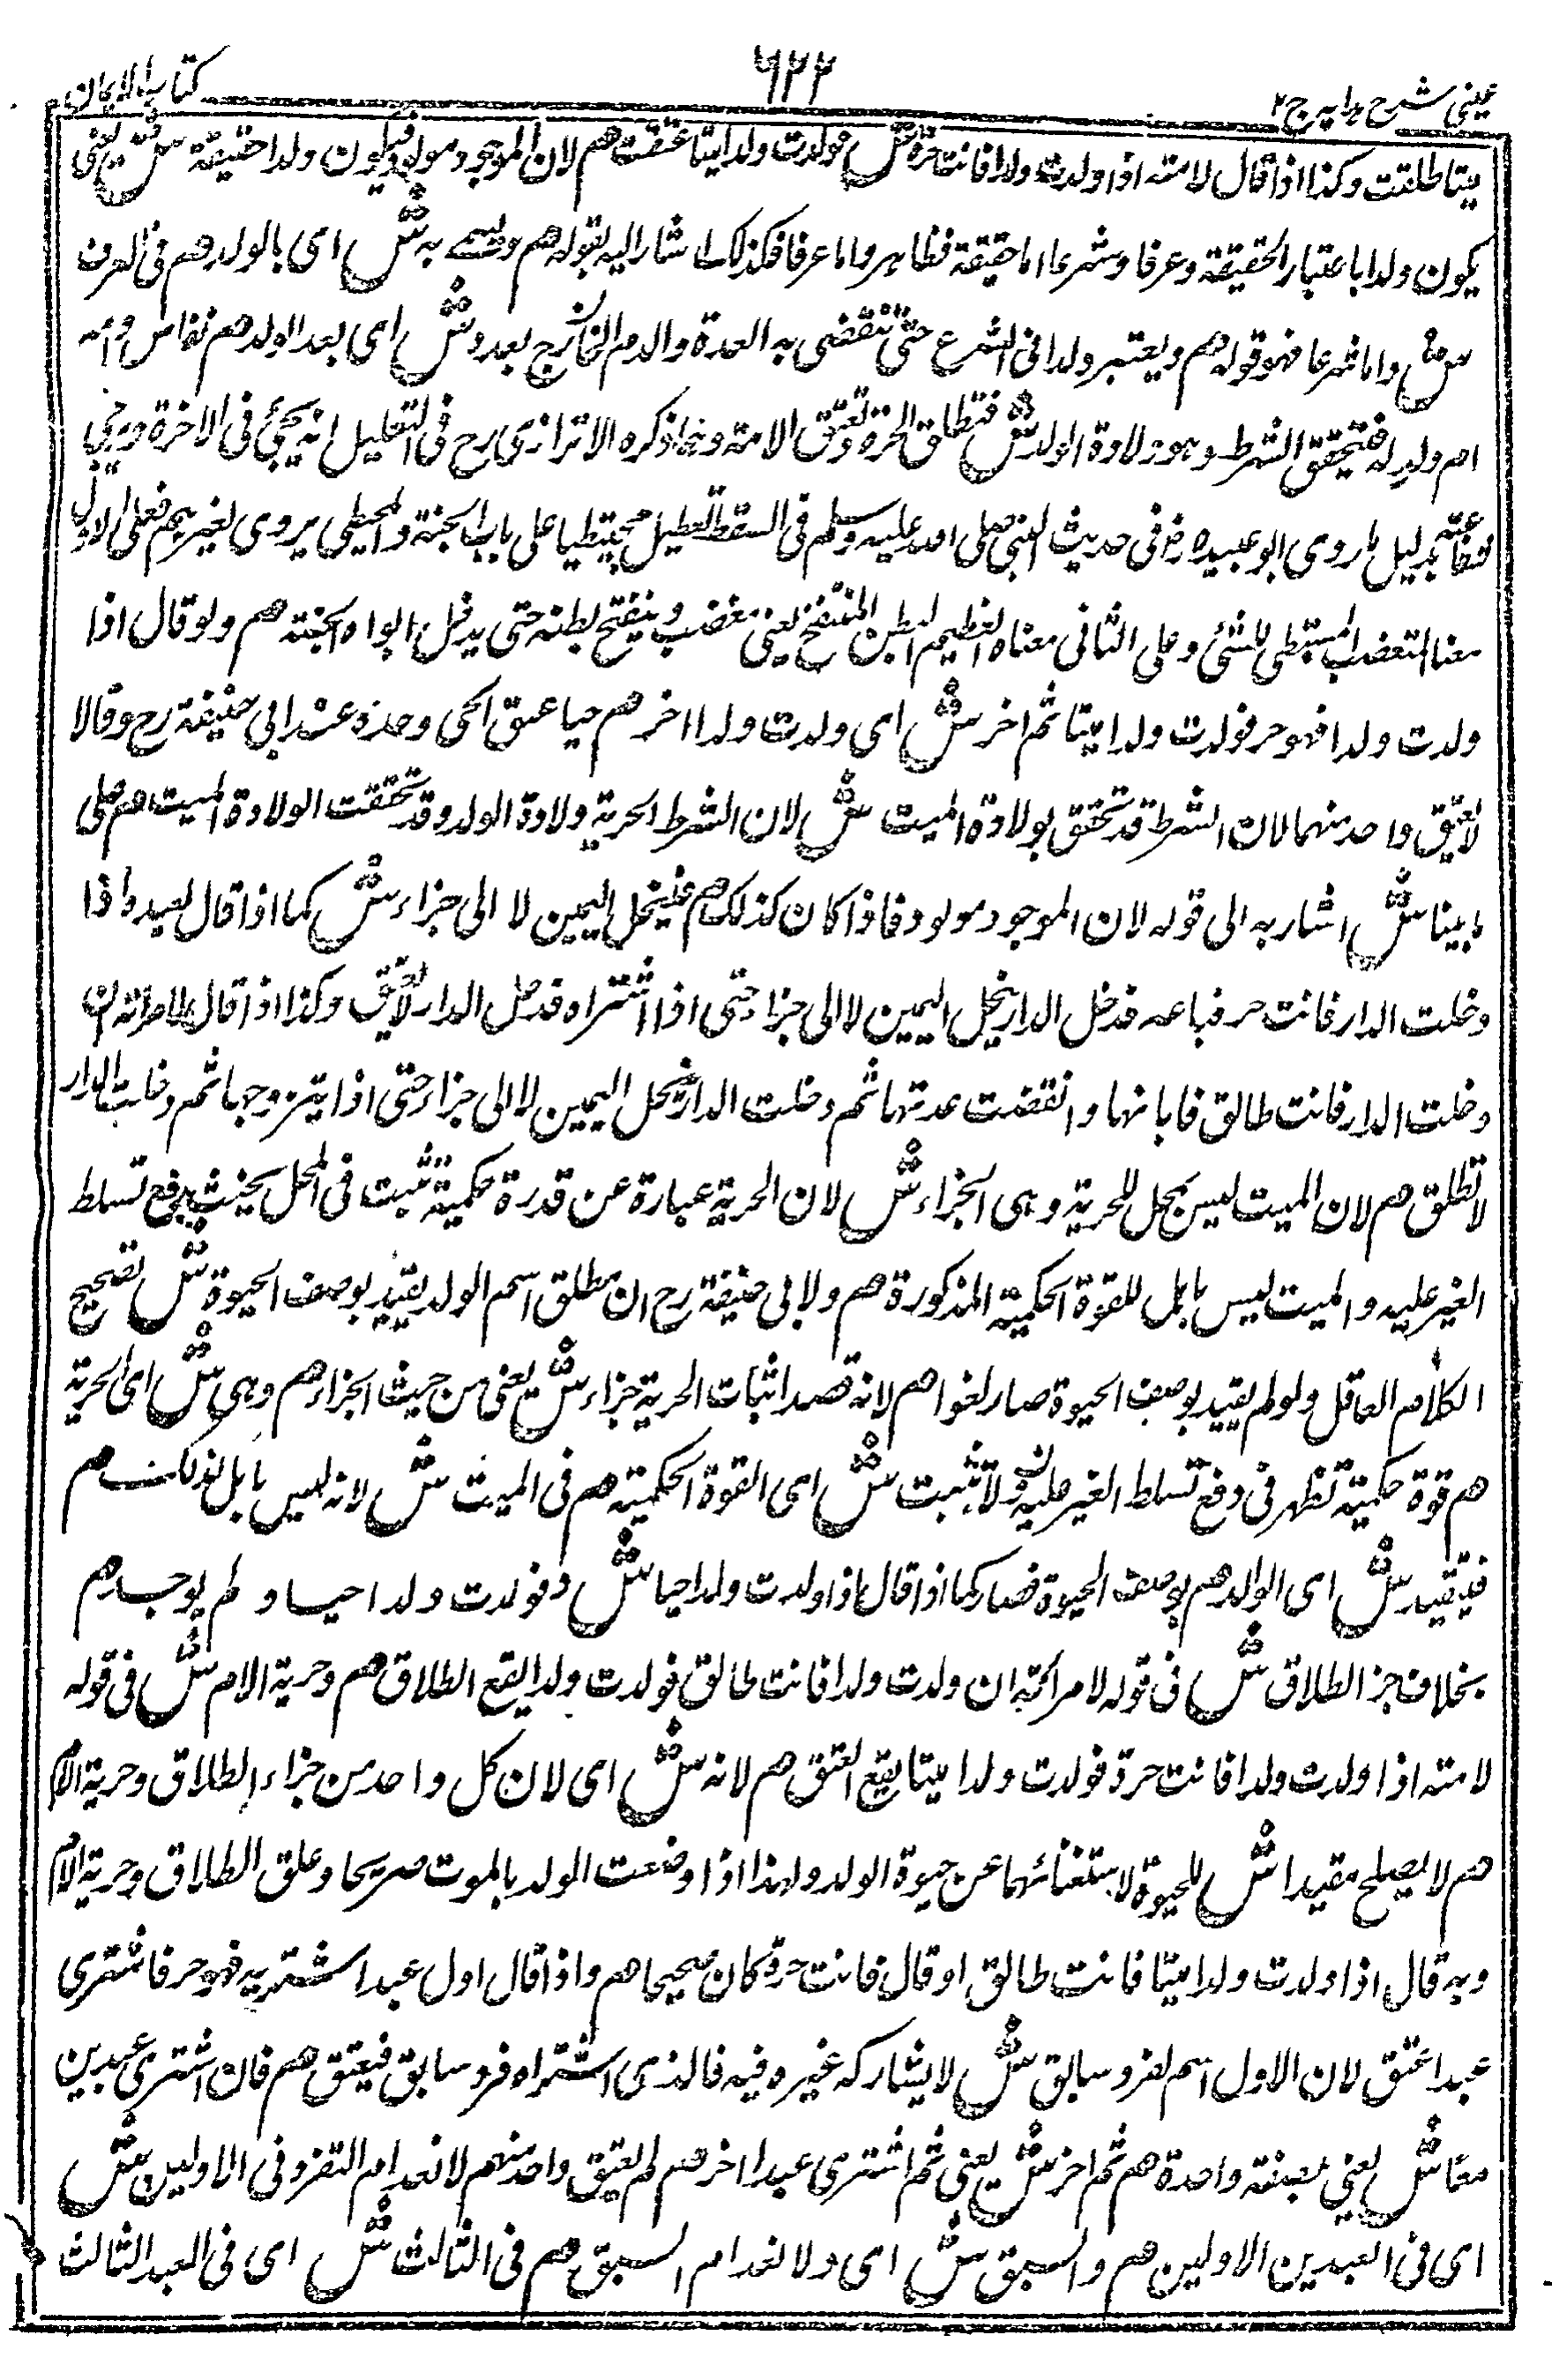 عینی شرح ہدایہ ج۲
۶۲۲
کتاب الایمان
میتا طلقت وکذا اذا قال لامته اذا ولدت ولدا فانت حرة ش فولدت ولدا میتا عتقت هم لان الموجود مولود فیکون ولدا حقیقة ش یعنی
یکون ولدا باعتبار الحقیقة وعرفا وشرعا اما حقیقة فظاهر واما عرفا فکذلک اشار الیه بقوله هم ویسمی به ش ای بالولد هم فی العرف
ش واما شرعا فهو قوله هم ویعتبر ولدا فی الشرع حتی تنقضی به العدة والدم الخارج بعده ش ای بعد الولد هم نفاس وامه
ام ولد له فتحقق الشرط وهو ولادة الولد ش فتطلق الحرة وتعتق الامة وبما ذکره الاترازی رح فی التعلیل انه یجئ فی الاخرة ویرجی
شفاعته بدلیل ما روی ابو عبیدة فی حدیث النبی صلی الله علیه وسلم فی السقط یظل محبنطیا علی باب الجنة والمحبنطی یروی بغیر همز فعلی الاول
معناه المتغضب المستبطی للشئ وعلی الثانی معناه العظیم البطن المنتفخ یعنی یغضب وینتفخ بطنه حتی یدخل ابواه الجنة هم ولو قال اذا
ولدت ولدا فهو حر فولدت ولدا میتا ثم اخر ش ای ولدت ولدا اخر هم حیا عتق الحی وحده عند ابی حنیفة رح وقالا
لا یعتق واحد منهما لان الشرط قد تحقق بولادة المیت ش لان الشرط الحریة ولادة الولد وقد تحققت الولادة المیت هم علی
ما بینا ش اشار به الی قوله لان الموجود مولود فاذا کان کذلک هم فینحل الیمین لا الی جزاء ش کما اذا قال لعبده اذا
دخلت الدار فانت حر فباعه فدخل الدار ینحل الیمین لا الی جزاء حتی اذا اشتراه فدخل الدار لا یعتق وکذا اذا قال لامراته ان
دخلت الدار فانت طالق فابانها وانقضت عدتها ثم دخلت الدار ینحل الیمین لا الی جزاء حتی اذا یتزوجها ثم دخلت الدار
لا تطلق هم لان المیت لیس بمحل للحریة وهی الجزاء ش لان الحریة عبارة عن قدرة حکمیة تثبت فی المحل بحیث یدفع تسلط
الغیر علیه والمیت لیس باهل للقوة الحکمیة المذکورة هم ولابی حنیفة رح ان مطلق اسم الولد یقید بوصف الحیوة ش تصحیح
الکلام العاقل ولو لم یقید بوصف الحیوة صار لغوا هم لانه قصد اثبات الحریة جزاء ش یعنی من حیث الجزاء هم وهی ش ای الحریة
هم قوة حکمیة تظهر فی دفع تسلط الغیر علیه ولا تثبت ش ای القوة الحکمیة هم فی المیت ش لانه لیس باهل لذلک هم
فیتقید ش ای الولد هم بوصف الحیوة فصار کما اذا قال اذا ولدت ولدا حیا ش فولدت ولدا حیا ولم یوجد هم
بخلاف جزا الطلاق ش فی قوله لامرأته ان ولدت ولدا فانت طالق فولدت ولدا یقع الطلاق هم وحریة الام ش فی قوله
لامته اذا ولدت ولدا فانت حرة فولدت ولدا میتا یقع العتق هم لانه ش ای لان کل واحد من جزاء الطلاق وحریة الام
هم لا یصلح مقیدا ش للحیوة لاستغنائهما عن حیوة الولد ولهذا اذا وضعت الولد بالموت صریحا وعلق الطلاق وحریة الام
وبه قال اذا ولدت ولدا میتا فانت طالق او قال فانت حرة کان صحیحا هم واذا قال اول عبد اشتریه فهو حر فاشتری
عبدا عتق لان الاول اسم لفرد سابق ش لا یشارکه غیره فیه فالذی اشتراه فرد سابق فیعتق هم فان اشتری عبدین
معا ش یعنی بصفقة واحدة هم ثم اخر ش یعنی ثم اشتری عبدا اخر هم لم یعتق واحد منهم لانعدام التفرد فی الاولین ش
ای فی العبدین الاولین هم والسبق ش ای ولانعدام السبق هم فی الثالث ش ای فی العبد الثالث